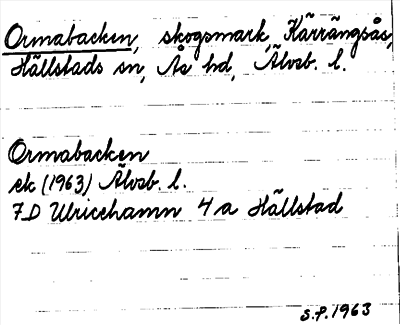 Ormabacken, skogsmark, Kärrängsås,
Hällstads sn, Ås hd, Älvsb. l.
Ormabacken
ek (1963) Älvsb. l.
7D Ulricehamn 4a Hällstad
S.P. 1963